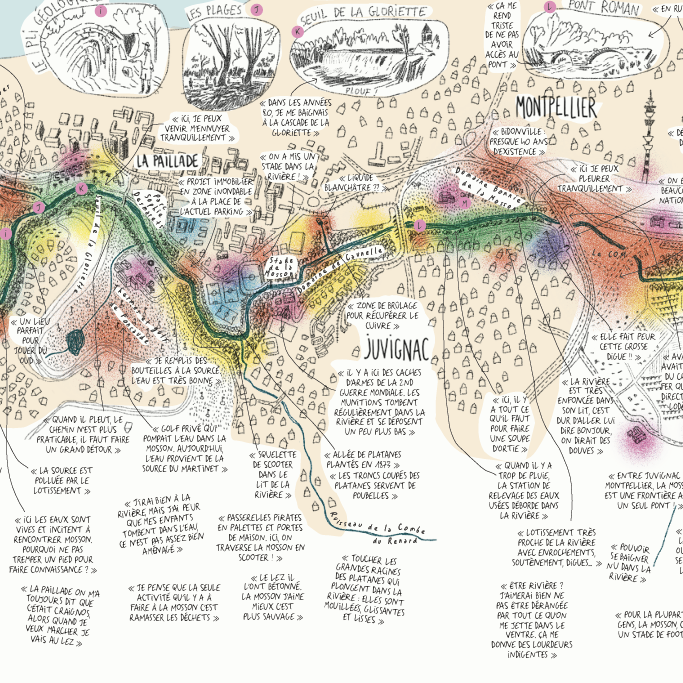 LE PLI GÉOLOGIQUE
I
LES PLAGES J
K
SEUIL DE LA GLORIETTE
PLOUF !
L
PONT ROMAN
« ÇA ME
REND
TRISTE
DE NE PAS
AVOIR
ACCÈS AU
PONT »
« EN RU
« ICI, JE PEUX
VENIR M'ENNUYER
TRANQUILLEMENT »
« DANS LES ANNÉES
80, JE ME BAIGNAIS
À LA CASCADE DE LA
GLORIETTE »
MONTPELLIER
« BIDONVILLE :
PRESQUE 40 ANS
D'EXISTENCE »
LA PAILLADE
« ON A MIS UN
STADE DANS LA
RIVIÈRE ! »
« LIQUIDE
BLANCHÂTRE ?? »
« ICI JE PEUX
PLEURER
TRANQUILLEMENT »
« PROJET IMMOBILIER
EN ZONE INONDABLE
À LA PLACE DE
L'ACTUEL PARKING »
Domaine Bonnier
de la Mosson
K
J
I
L
Stade
de la
Mosson
Domaine de Caunelle
« UN LIEU
PARFAIT
POUR
JOUER DU
OUD »
« ZONE DE BRÛLAGE
POUR RÉCUPÉRER LE
CUIVRE »
JUVIGNAC
« ELLE FAIT PEUR
CETTE GROSSE
DIGUE !! »
« JE REMPLIS DES
BOUTEILLES À LA SOURCE,
L'EAU EST TRÈS BONNE »
« IL Y A ICI DES CACHES
D'ARMES DE LA 2ND
GUERRE MONDIALE. LES
MUNITIONS TOMBENT
RÉGULIÈREMENT DANS LA
RIVIÈRE ET SE DÉPOSENT
UN PEU PLUS BAS »
« ICI, IL Y
A TOUT CE
QU'IL FAUT
POUR FAIRE
UNE SOUPE
D'ORTIE »
« LA RIVIÈRE
EST TRÈS
ENFONCÉE DANS
SON LIT, C'EST
DUR D'ALLER LUI
DIRE BONJOUR,
ON DIRAIT DES
DOUVES »
« QUAND IL PLEUT, LE
CHEMIN N'EST PLUS
PRATICABLE, IL FAUT FAIRE
UN GRAND DÉTOUR »
« GOLF PRIVÉ QUI
POMPAIT L'EAU DANS LA
MOSSON. AUJOURD'HUI,
L'EAU PROVIENT DE LA
SOURCE DU MARTINET »
« SQUELETTE
DE SCOOTER
DANS LE
LIT DE LA
RIVIÈRE »
« ALLÉE DE PLATANES
PLANTÉS EN 1873 »
« LES TRONCS COUPÉS DES
PLATANES SERVENT DE
POUBELLES »
« LA SOURCE EST
POLLUÉE PAR LE
LOTISSEMENT »
« QUAND IL Y A
TROP DE PLUIE,
LA STATION DE
RELEVAGE DES EAUX
USÉES DÉBORDE DANS
LA RIVIÈRE »
« ENTRE JUVIGNAC
MONTPELLIER, LA MOSS
EST UNE FRONTIÈRE A
UN SEUL PONT »
« J'IRAI BIEN À LA
RIVIÈRE, MAIS J'AI PEUR
QUE MES ENFANTS
TOMBENT DANS L'EAU,
CE N'EST PAS ASSEZ BIEN
AMÉNAGÉ »
« ICI LES EAUX SONT
VIVES ET INCITENT À
RENCONTRER MOSSON.
POURQUOI NE PAS
TREMPER UN PIED POUR
FAIRE CONNAISSANCE ? »
« PASSERELLES PIRATES
EN PALETTES ET PORTES
DE MAISON. ICI, ON
TRAVERSE LA MOSSON EN
SCOOTER ! »
Ruisseau de la Combe
du Renard
« LOTISSEMENT TRÈS
PROCHE DE LA RIVIÈRE
AVEC ENROCHEMENTS,
SOUTÈNEMENT, DIGUES... »
« POUVOIR
SE BAIGNER
NU DANS LA
RIVIÈRE »
« TOUCHER LES
GRANDES RACINES
DES PLATANES QUI
PLONGENT DANS LA
RIVIÈRE : ELLES SONT
MOUILLÉES, GLISSANTES
ET LISSES »
« LA PAILLADE ON M'A
TOUJOURS DIT QUE
C'ÉTAIT CRAIGNOS,
ALORS QUAND JE
VEUX MARCHER JE
VAIS AU LEZ »
« JE PENSE QUE LA SEULE
ACTIVITÉ QU'IL Y A À
FAIRE À LA MOSSON C'EST
RAMASSER LES DÉCHETS »
« LE LEZ IL
L'ONT BÉTONNÉ.
LA MOSSON J'AIME
MIEUX C'EST
PLUS SAUVAGE »
« ÊTRE RIVIÈRE ?
J'AIMERAI BIEN NE
PAS ÊTRE DÉRANGÉE
PAR TOUT CE QU'ON
ME JETTE DANS LE
VENTRE. ÇA ME
DONNE DES LOURDEURS
INDIGENTES »
« POUR LA PLUPAR
GENS, LA MOSSON, C
UN STADE DE FOOT